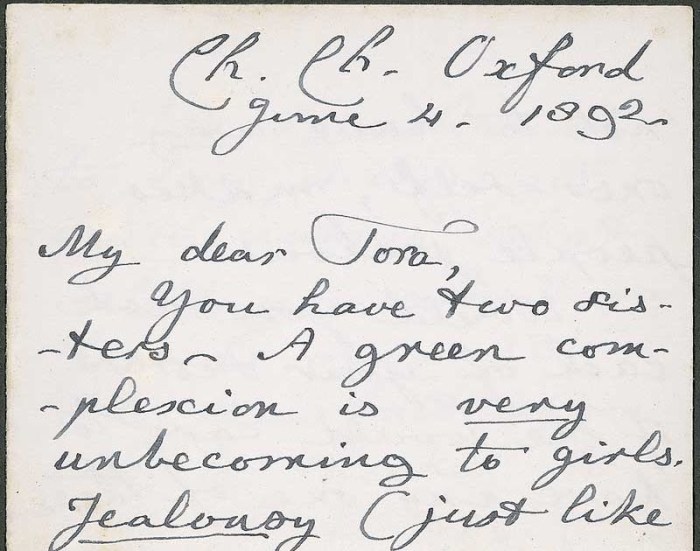 Ch. Ch. Oxford
June 4. 1892.
My dear Tora,
You have two sis-
-ters. A green com-
-plexion is very
unbecoming to girls.
Jealousy (just like